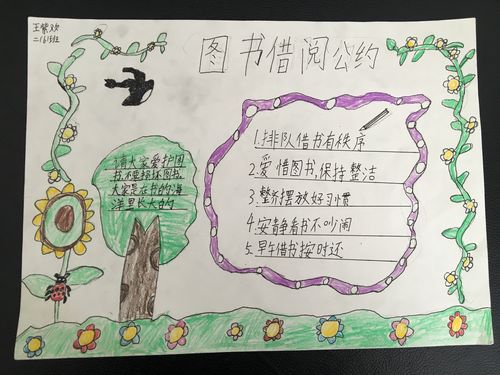 王紫欢
二(6)班
图书借阅公约
请大家爱护图
书,不要损坏图书,
大家是在书的海
洋里长大的
1.排队借书有秩序
2.爱惜图书,保持整洁
3.整齐摆放好习惯
4.安静看书不吵闹
5.早午借书按时还